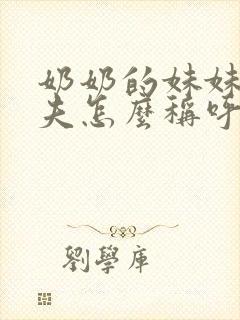 奶奶的妹妹
夫怎麼稱呼
劉學庫